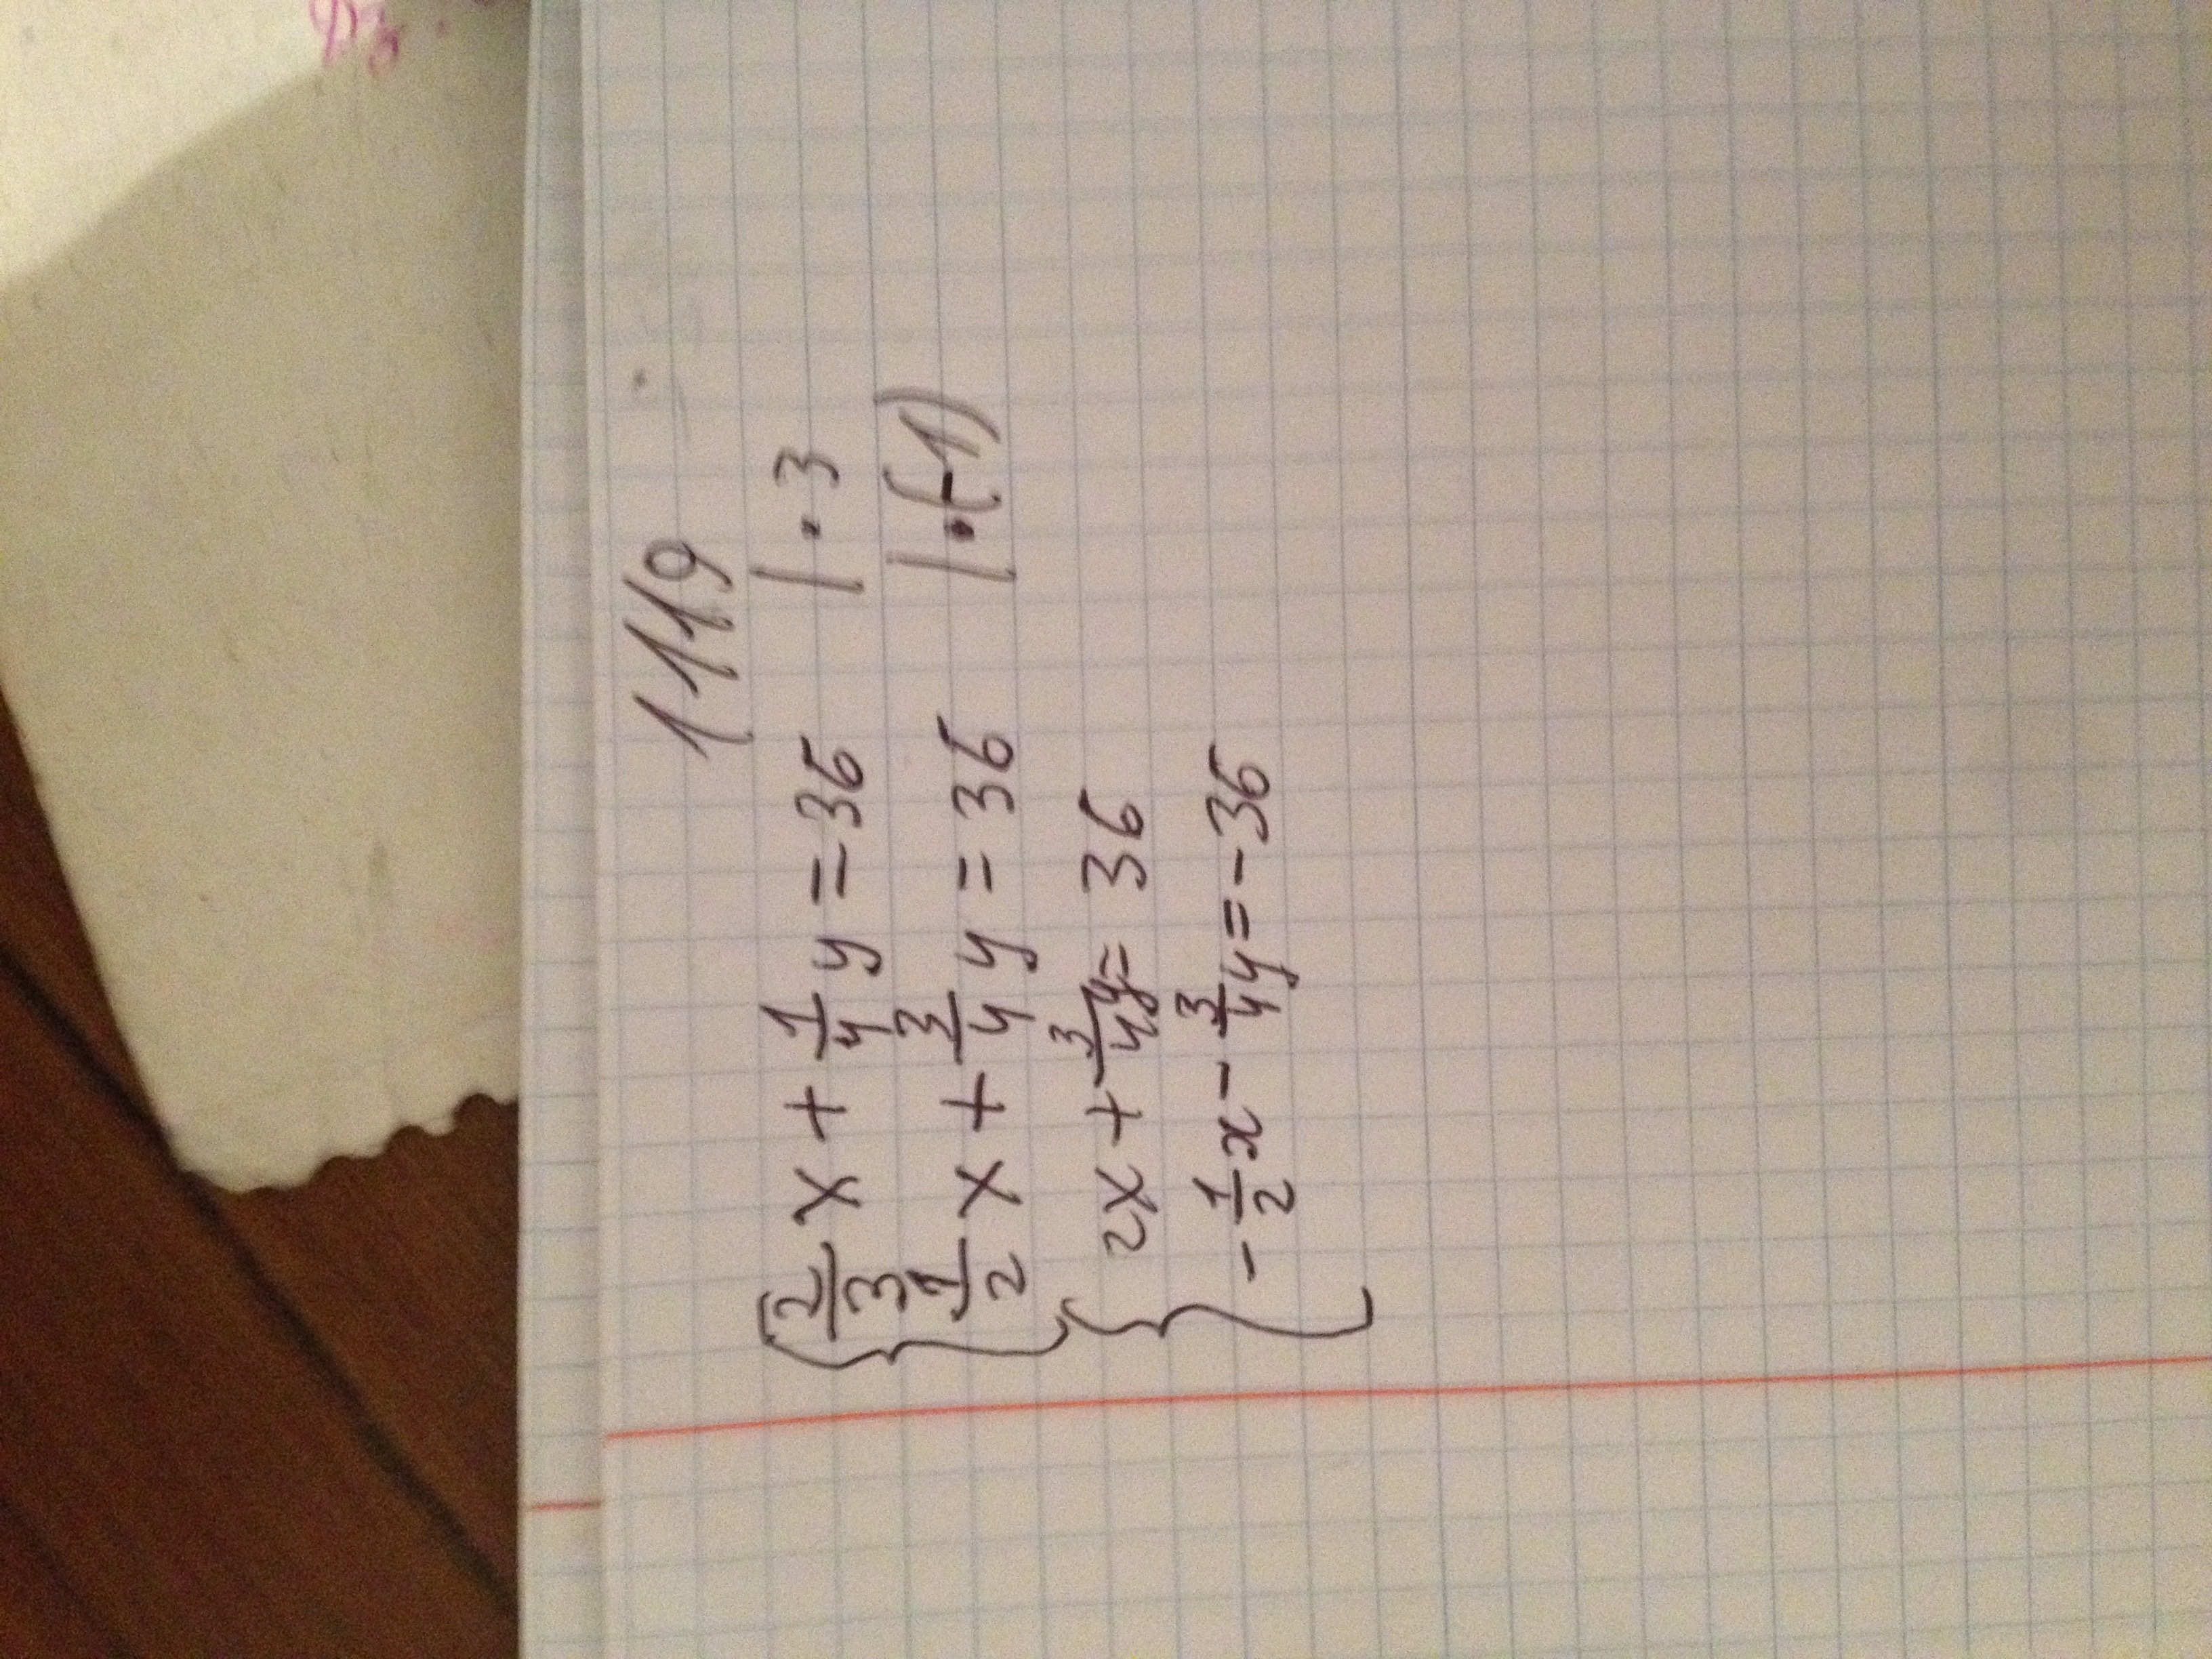 1119
2/3 x + 1/4 y = 36 | · 3
1/2 x + 3/4 y = 36 | · (-1)
2x + 3/4 y = 36
- 1/2 x - 3/4 y = - 36